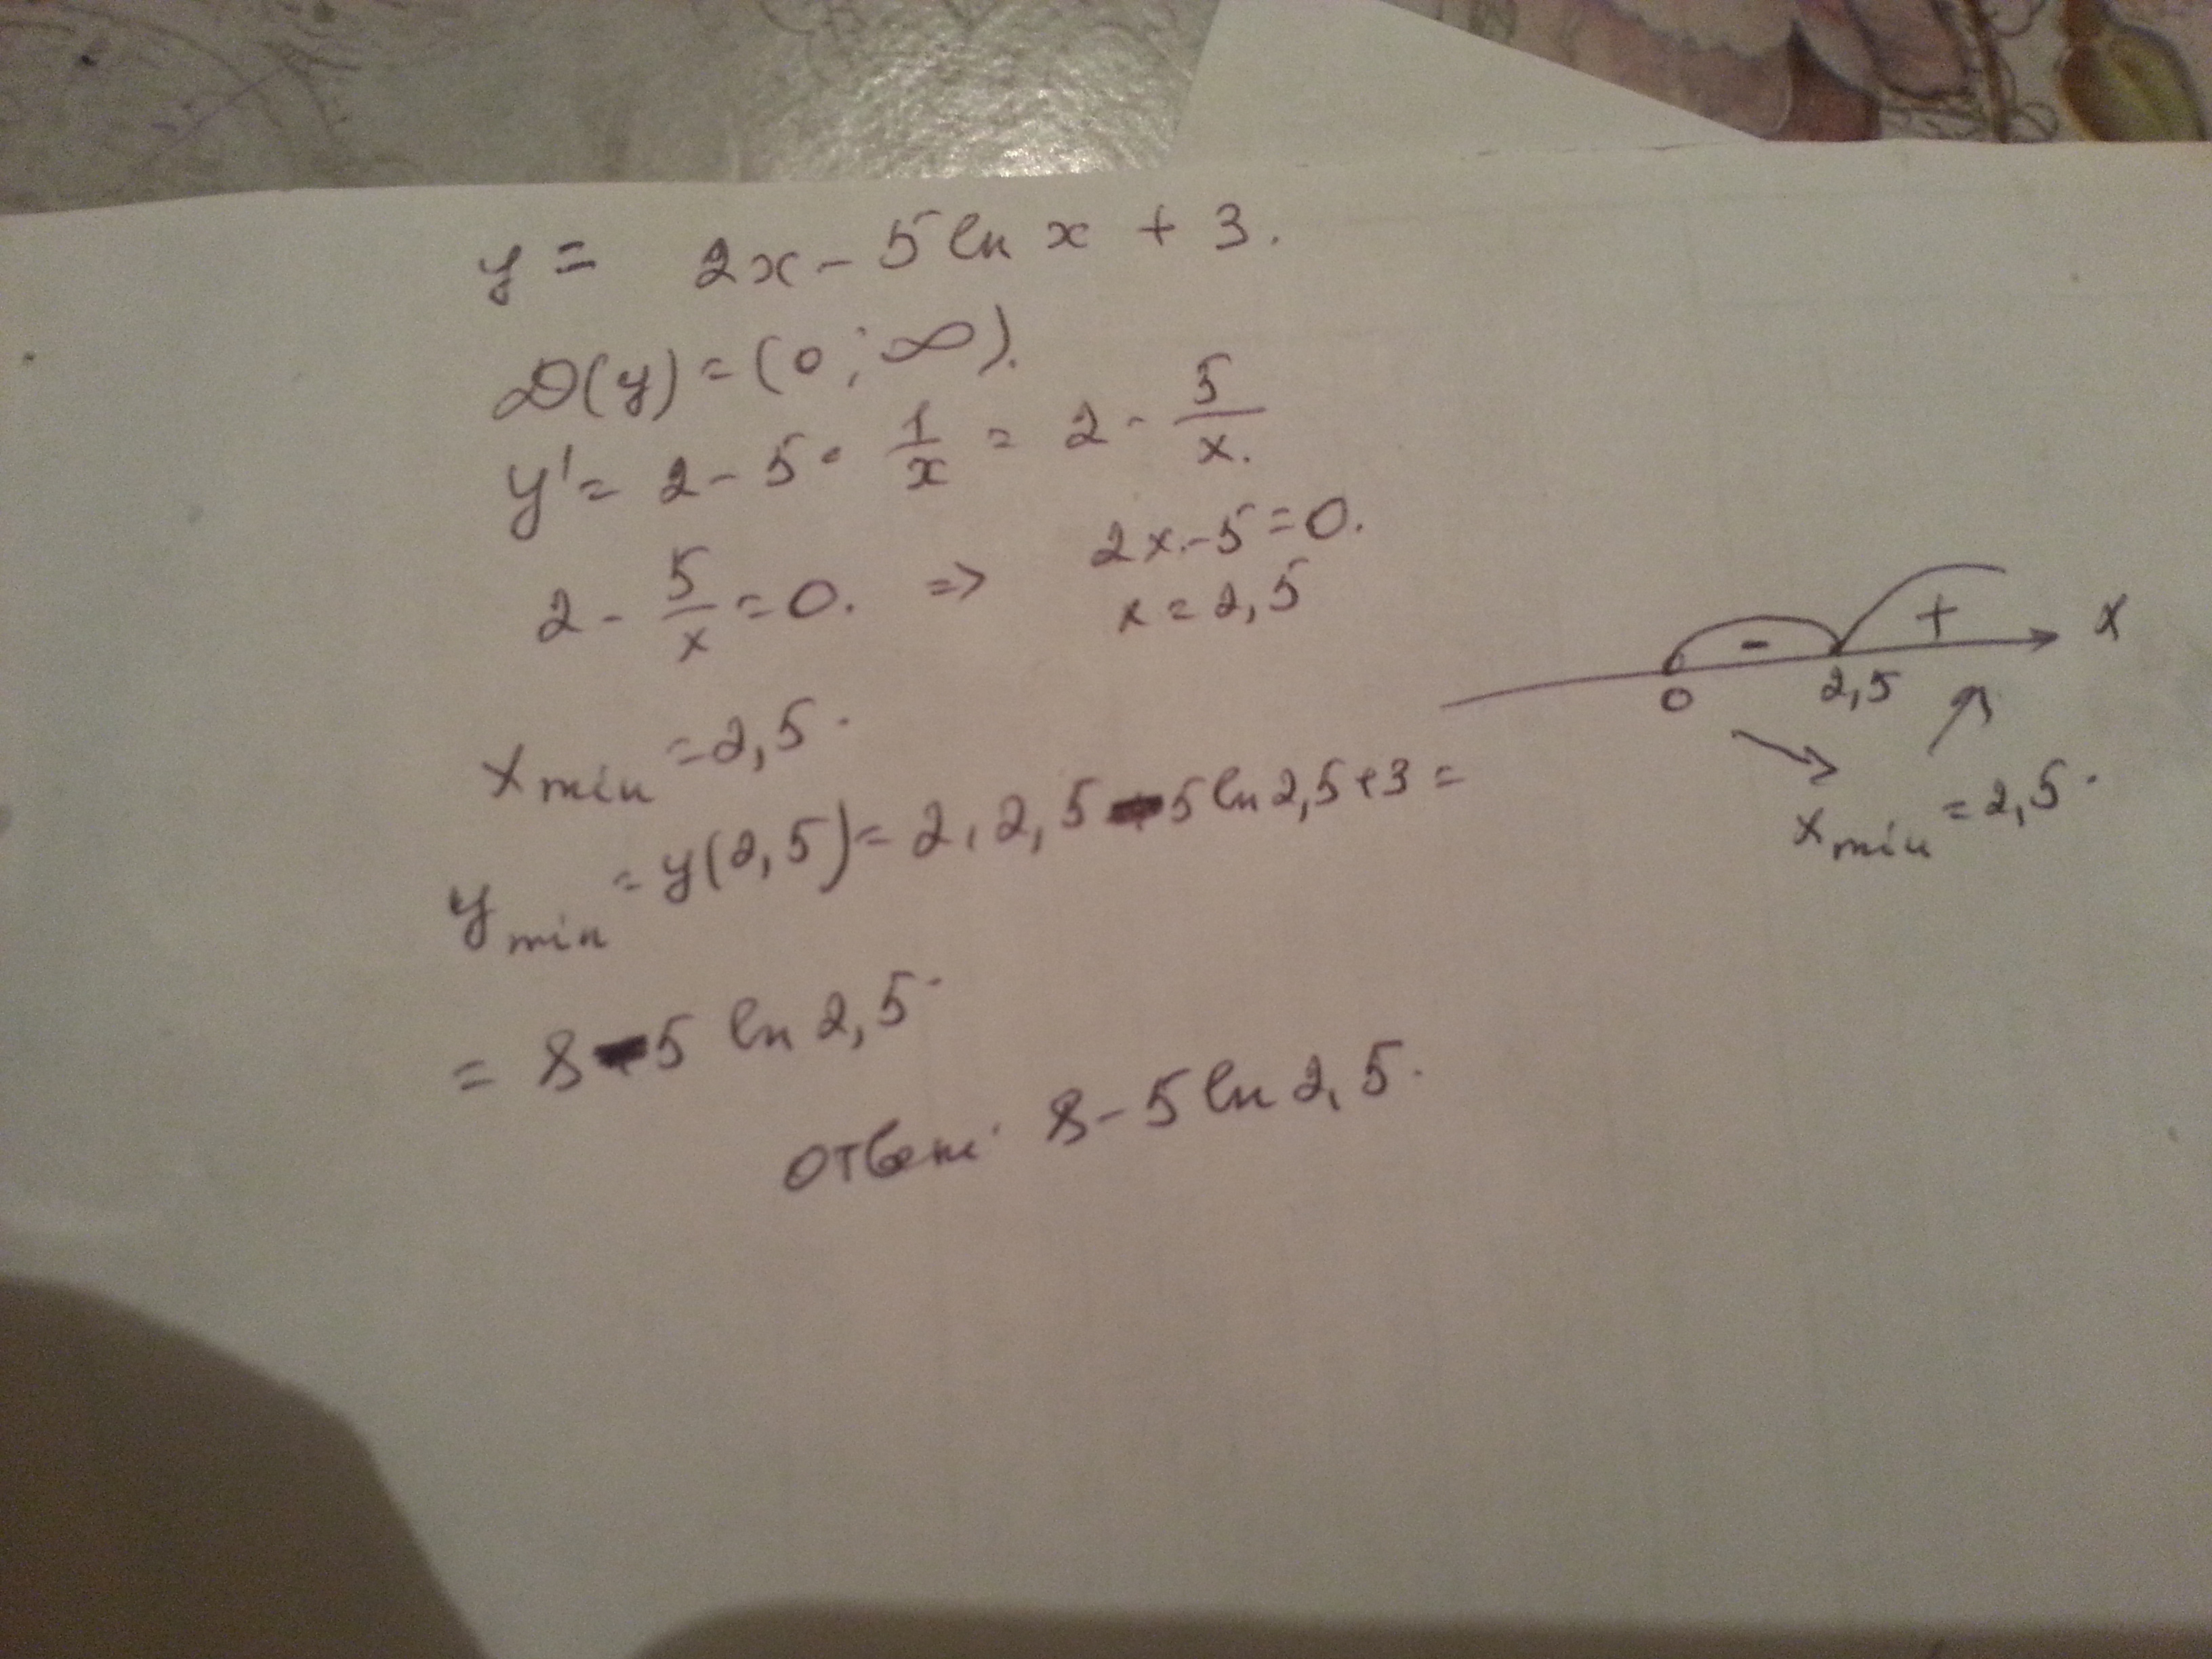 y = 2x - 5 ln x + 3.
D(y) = (0; ∞).
y' = 2 - 5 · 1/x = 2 - 5/x.
2 - 5/x = 0. => 2x - 5 = 0.
x = 2,5
- + x
0 2,5
x min = 2,5.
x min = 2,5.
y min = y(2,5) = 2 · 2,5 - 5 ln 2,5 + 3 =
= 8 - 5 ln 2,5.
Ответ: 8 - 5 ln 2,5.